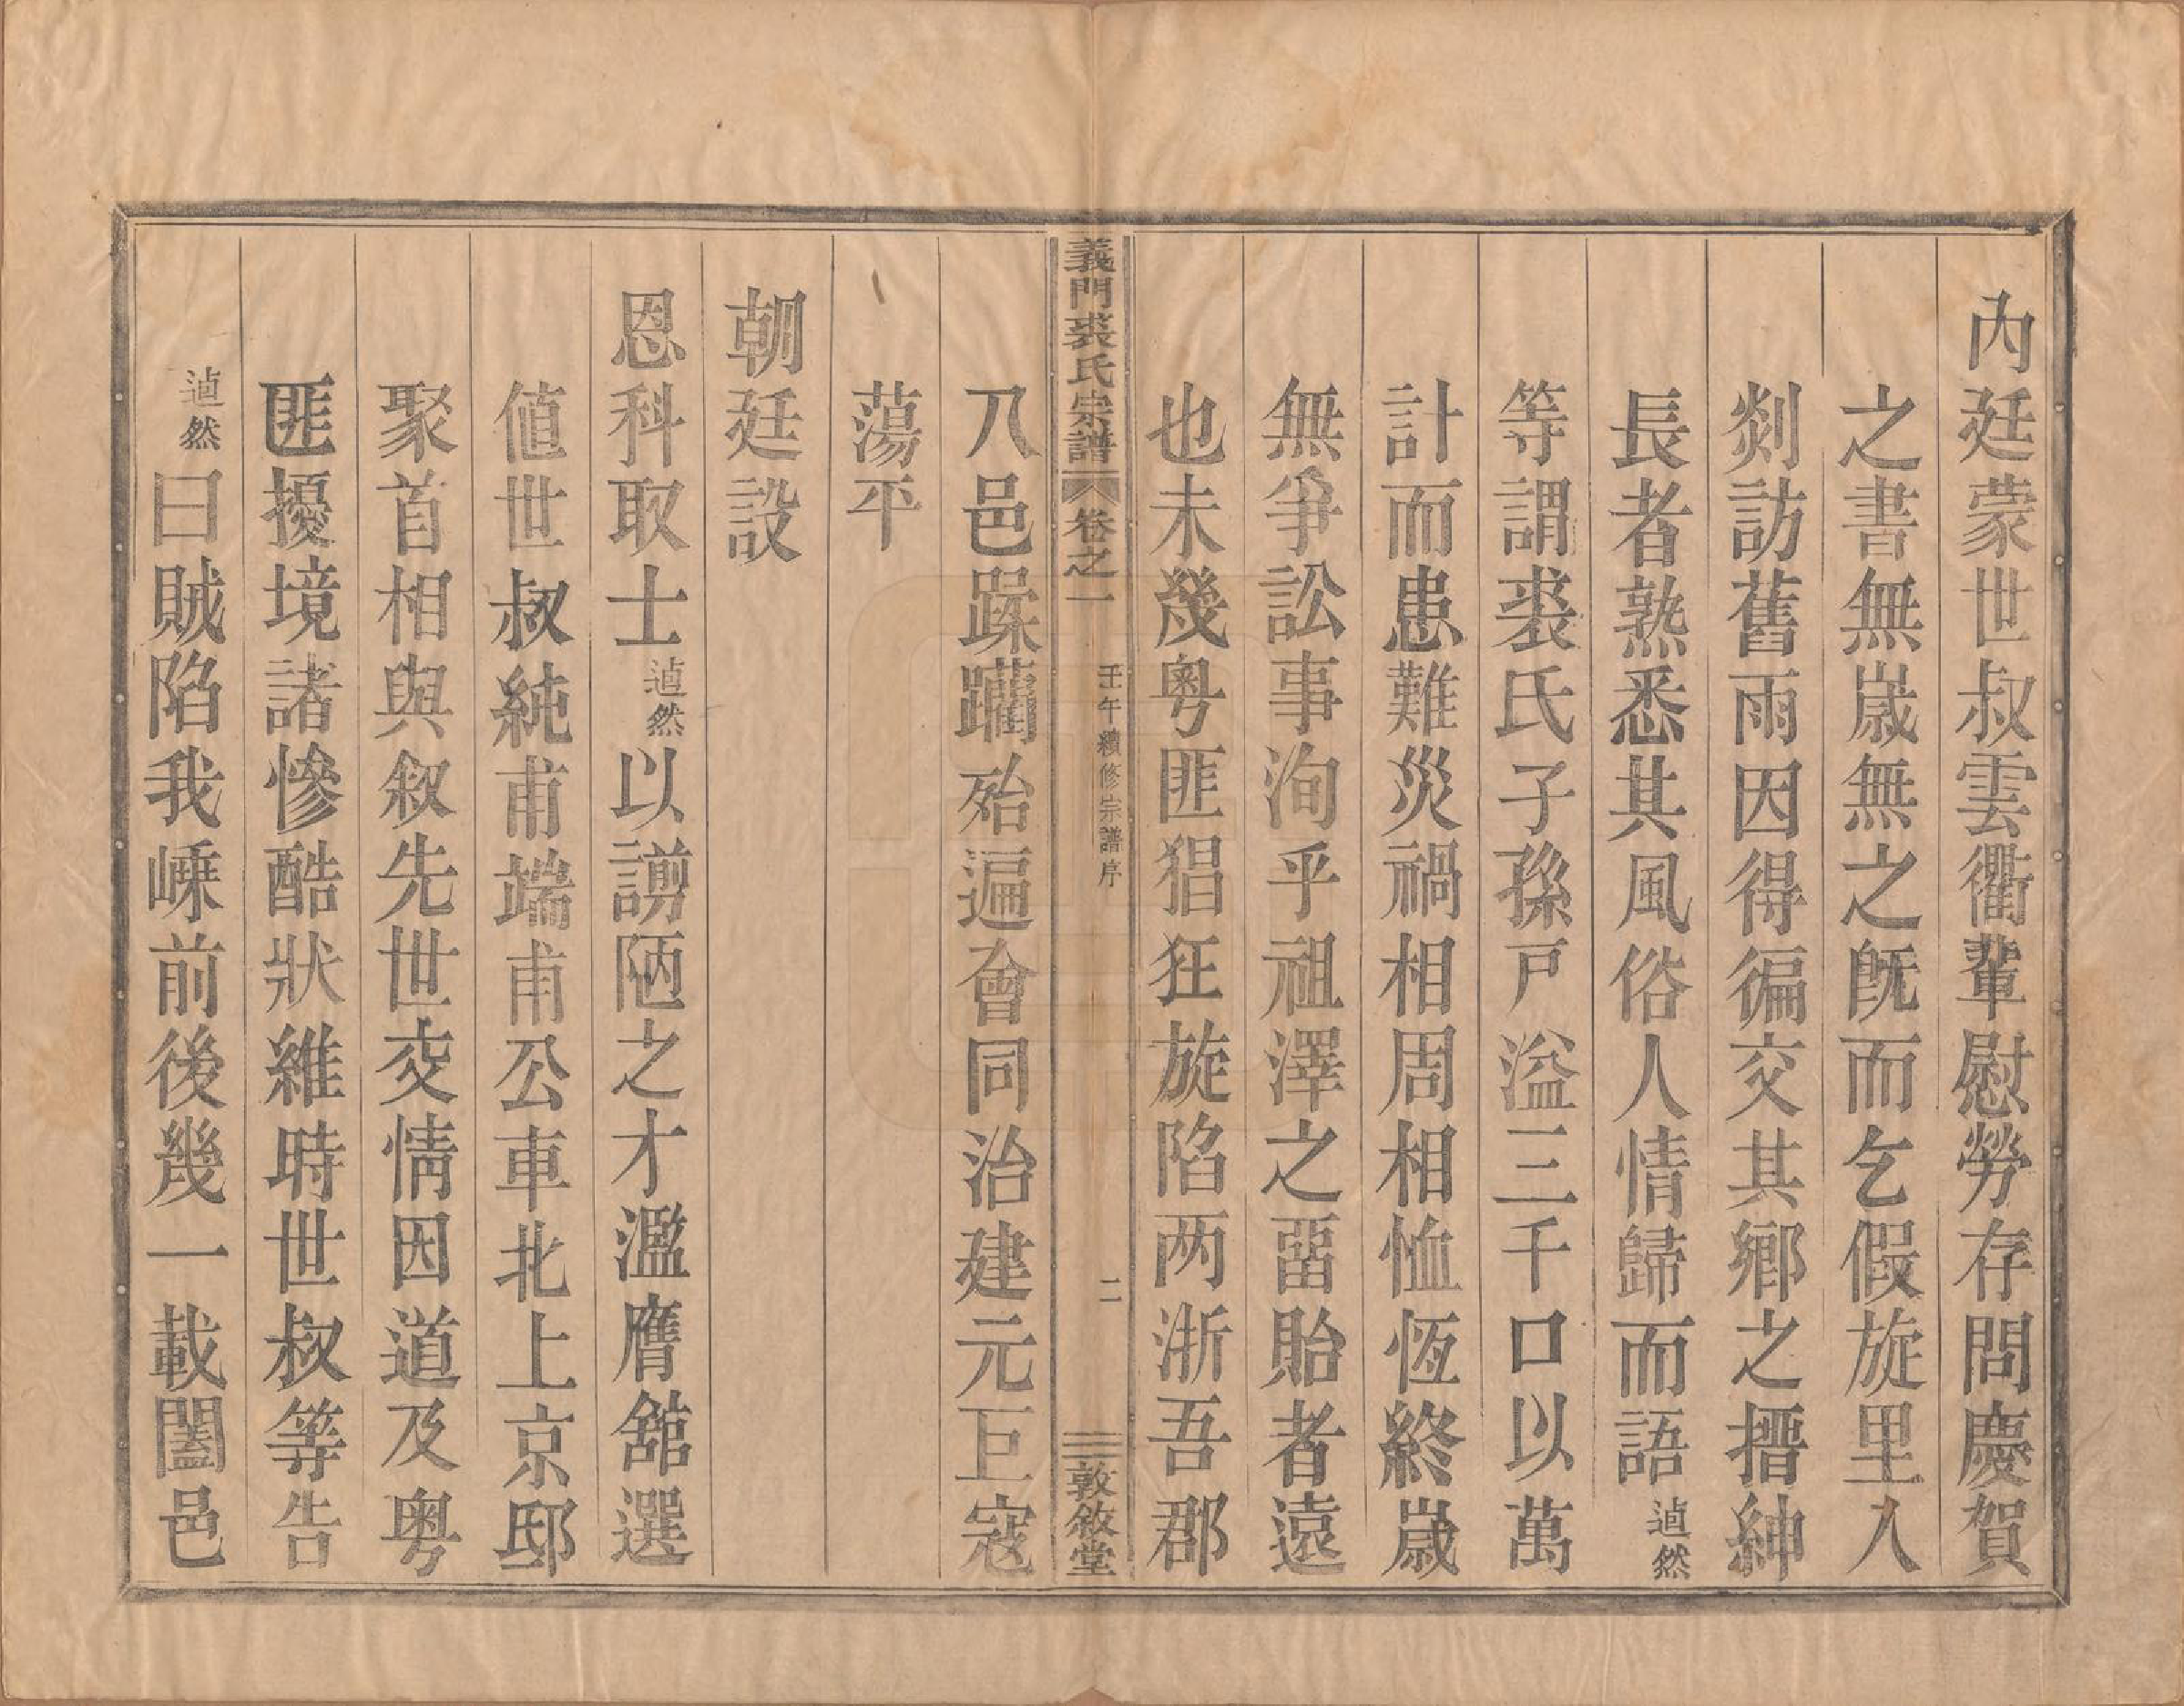 內廷蒙世叔雲衢輩慰勞存問慶賀
之書無歲無之旣而乞假旋里入
剡訪舊雨因得徧交其鄉之搢紳
長者熟悉其風俗人情歸而語逌然
等謂裘氏子孫戸溢三千口以萬
計而患難災禍相周相恤恆終歲
無爭訟事洵乎祖澤之畱貽者遠
也未幾粤匪猖狂旋陷两浙吾郡
義門裘氏宗譜
卷之一
壬午續修宗譜序
二
敦敘堂
八邑蹂躪殆遍會同治建元巨寇
蕩平
朝廷設
恩科取士逌然以謭陋之才濫膺舘選
値世叔純甫端甫公車北上京邸
聚首相與叙先世交情因道及粤
匪擾境諸慘酷狀維時世叔等告
逌然曰賊陷我嵊前後幾一載闔邑